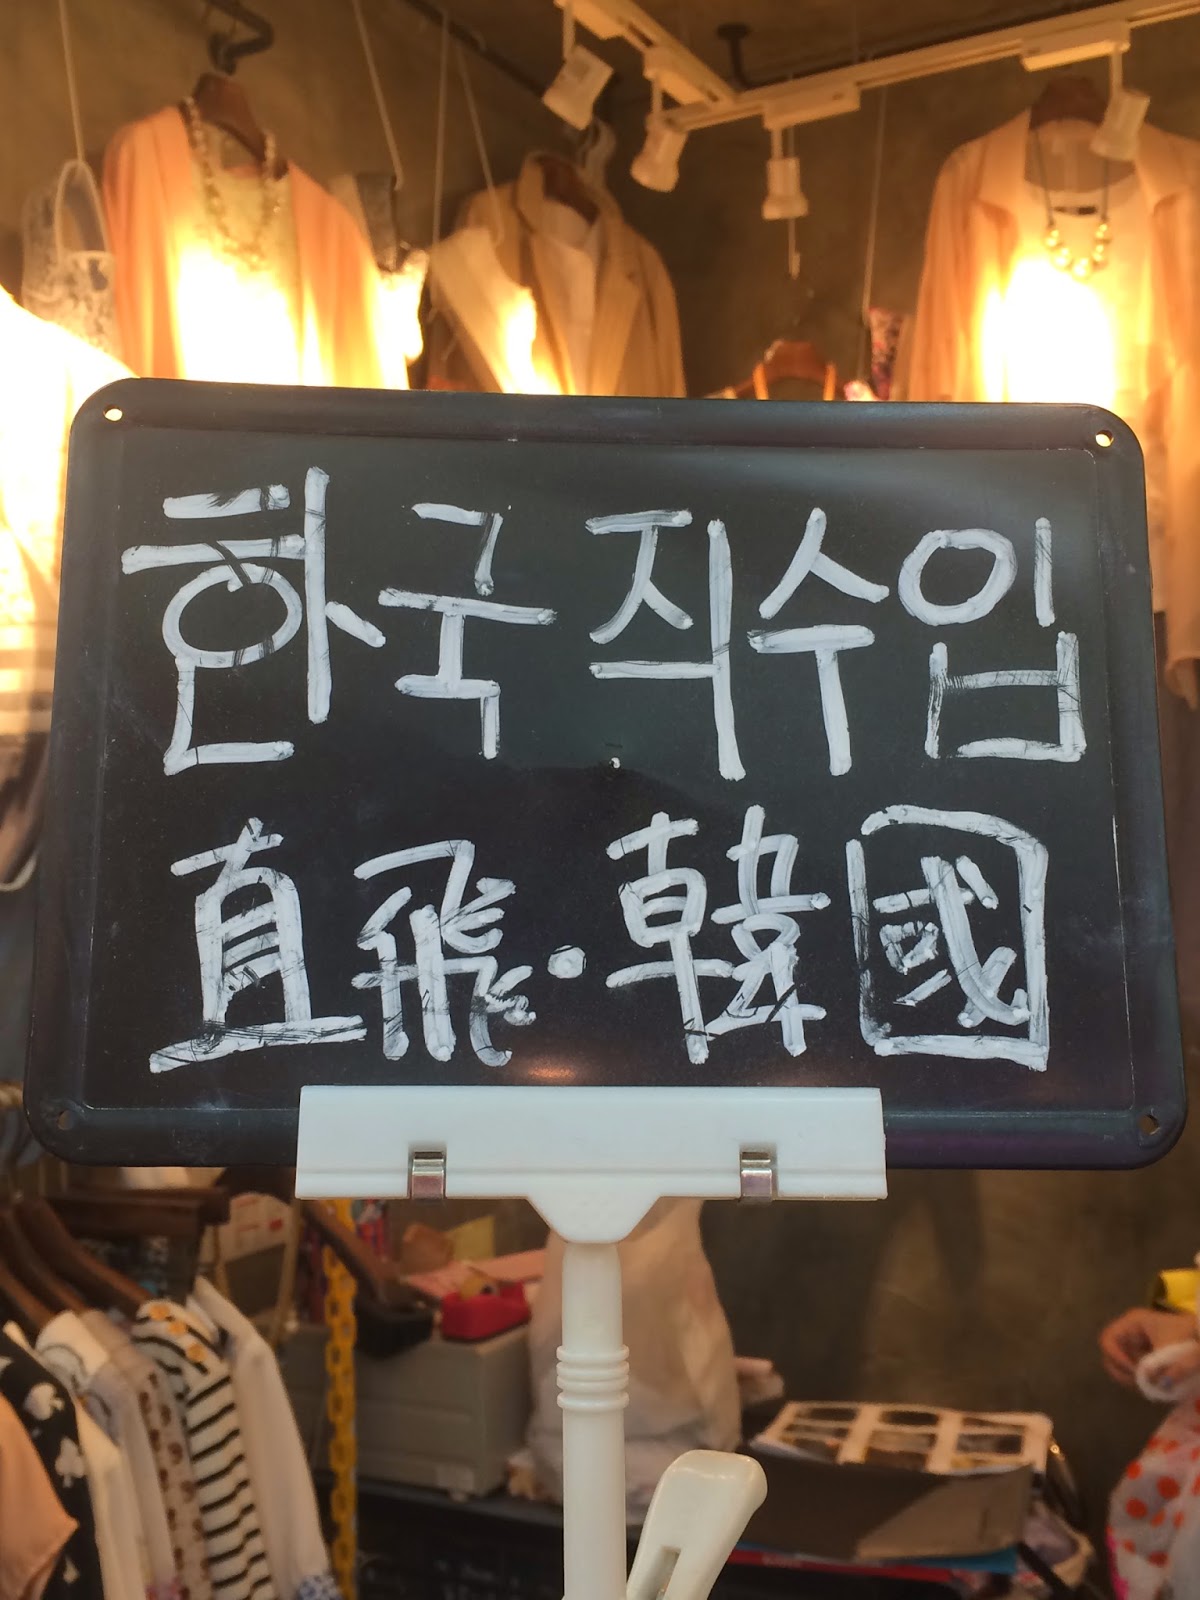 한국 직수입
直飛·韓國